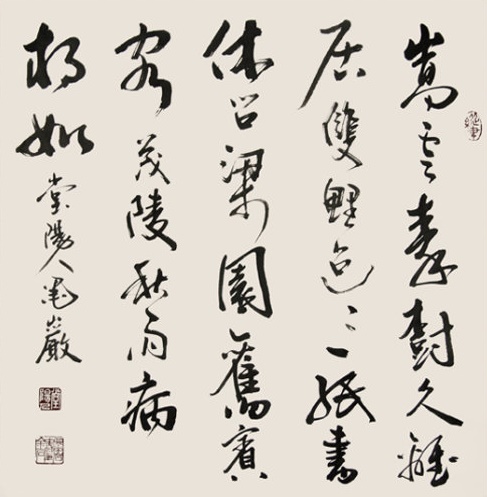 嵩云秦樹久離
居雙鯉迢〻一紙書
休问梁園舊賓
客茂陵秋雨病
相如
棠陽人 巖